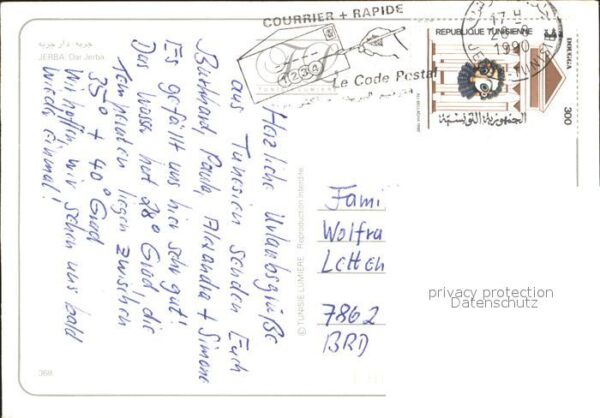 جربه دار جربه
JERBA, Dar Jerba
COURRIER + RAPIDE
1 2 3 4
Le Code Postal
17-
1990
REPUBLIQUE TUNISIENNE
DOUGGA
300
الجمهورية التونسية
Herzliche Urlaubsgrüße
aus Tunesien senden Euch
Burkhard, Paula, Alexandra + Simone
Es gefällt uns hier sehr gut!
Das Wasser hat 28° Grad, die
Temperaturen liegen zwischen
35° + 40° Grad
Wir hoffen wir sehen uns bald
wieder einmal!
© TUNISIE LUMIERE Reproduction interdite
Fami
Wolfra
Letten
7862
BRD
privacy protection
Datenschutz
368